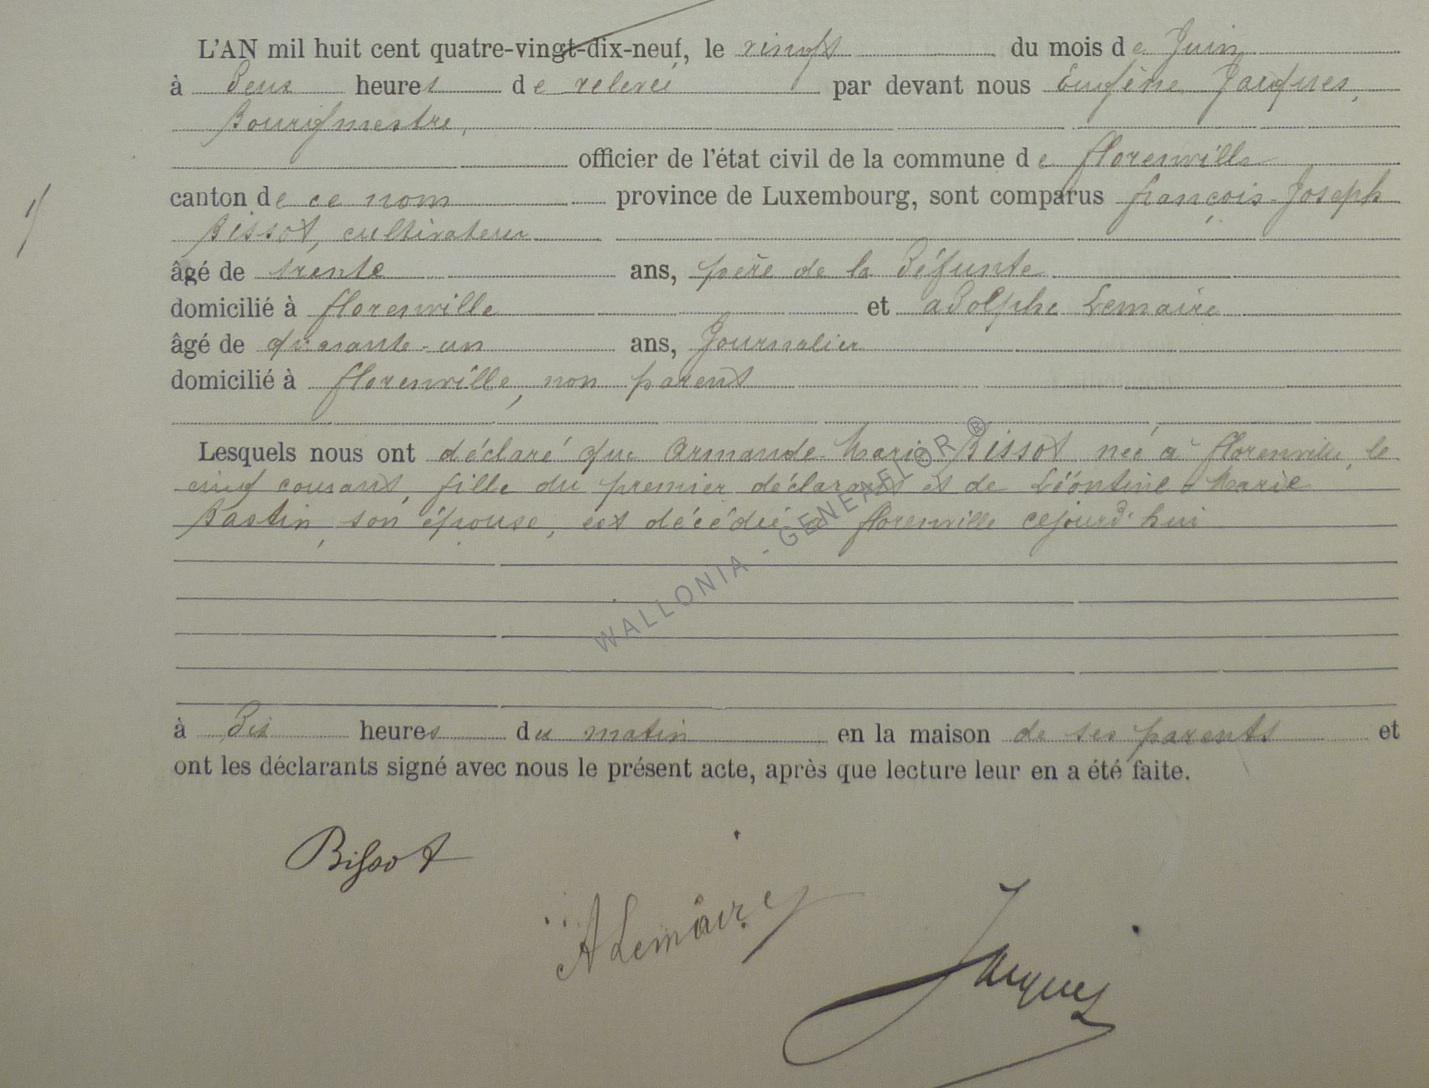 L'AN mil huit cent quatre-vingt-dix-neuf, le vingt du mois de Juin
à Deux heures de relevée par devant nous Eugène Jacques,
Bourgmestre,
officier de l'état civil de la commune de florenville
canton de ce nom province de Luxembourg, sont comparus françois-Joseph
Bissot, cultivateur
âgé de trente ans, père de la Défunte
domicilié à florenville et adolphe Lemaire
âgé de quarante-un ans, Journalier
domicilié à florenville, non parent
Lesquels nous ont déclaré que Armande-Marie Bissot née à florenville, le
cinq courant, fille du premier déclarant et de Léontine-Marie
Bastin, son épouse, est décédée à florenville cejourd'hui
à Dix heures du matin en la maison de ses parents et
ont les déclarants signé avec nous le présent acte, après que lecture leur en a été faite.
Bissot
A Lemaire
Jacques
WALLONIA - GENEALOR ®